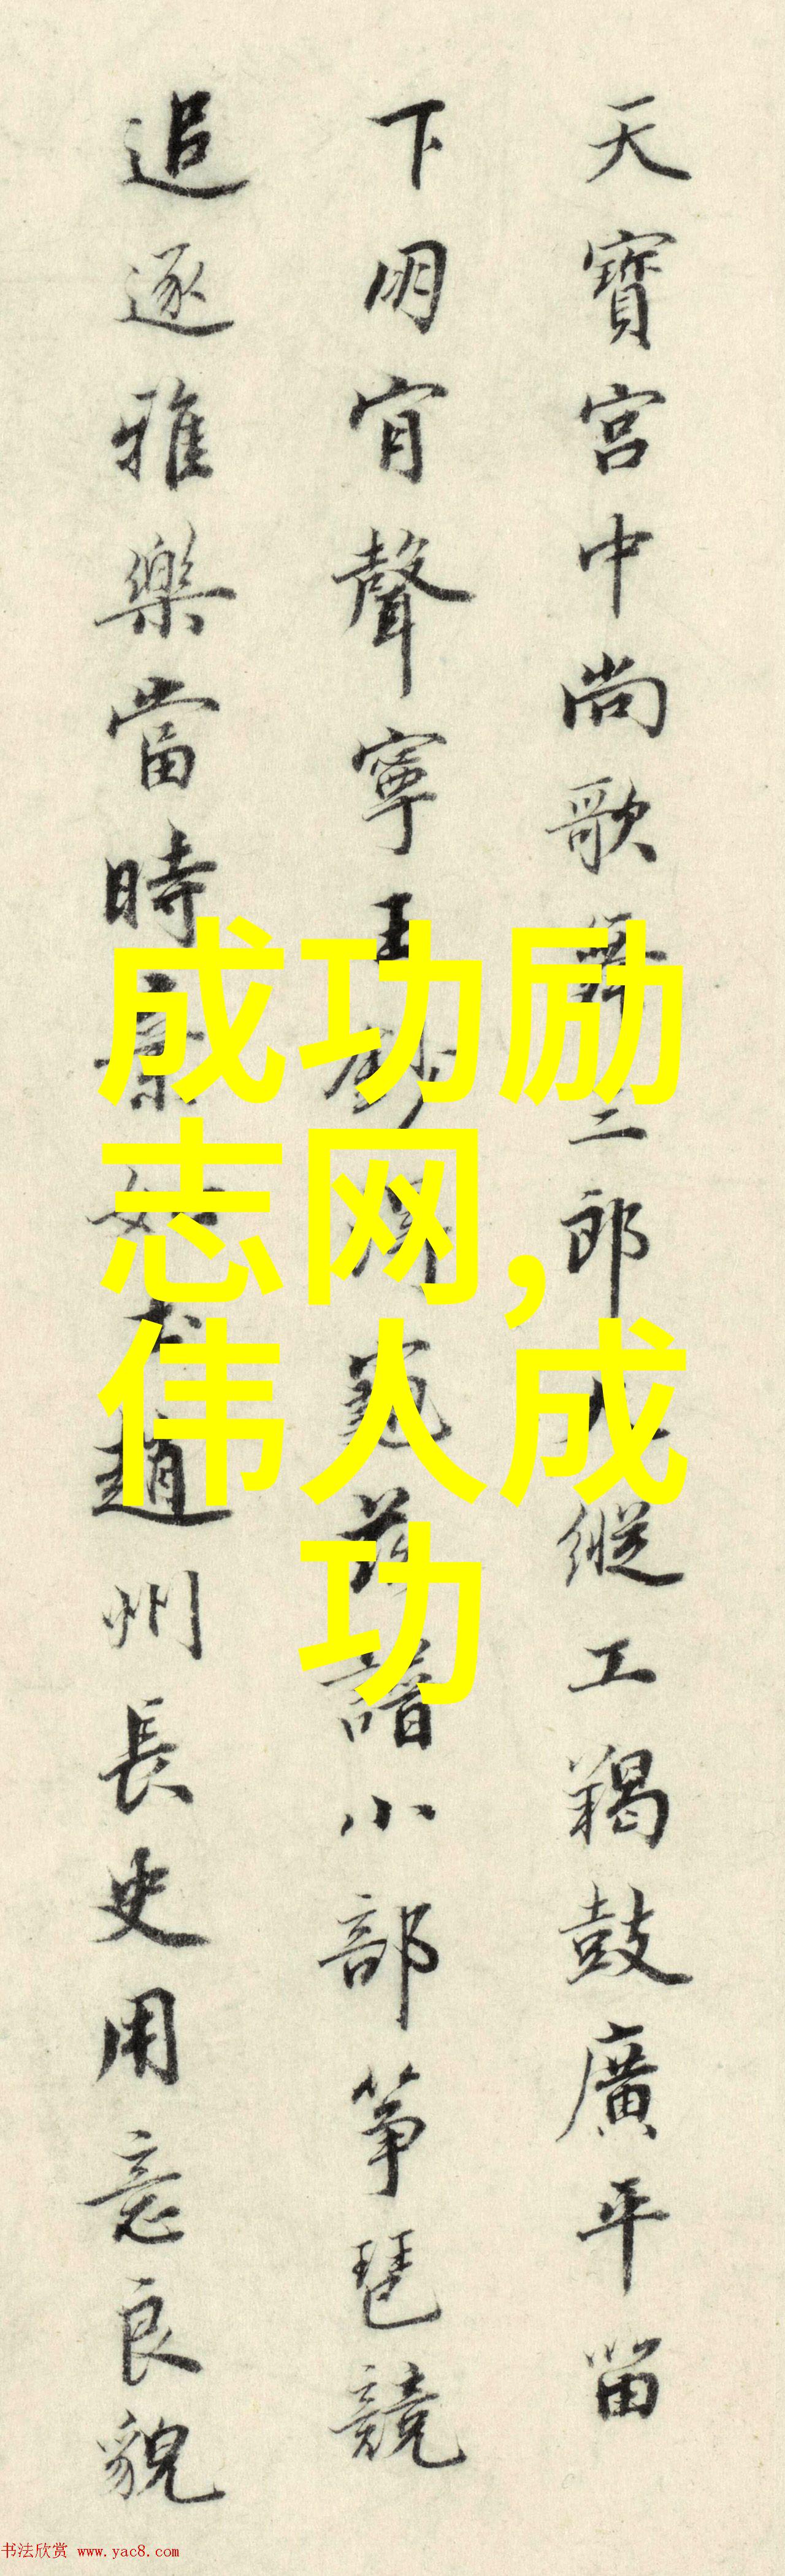 天寶宮中尚歌舞二郎縱工羯鼓廣平留
下明宵聲寧王譜小部箏琶競
追逐雅樂當時趙州長史用意良貌
成功励
志网,
伟人成
功
书法欣赏 www.yac8.com